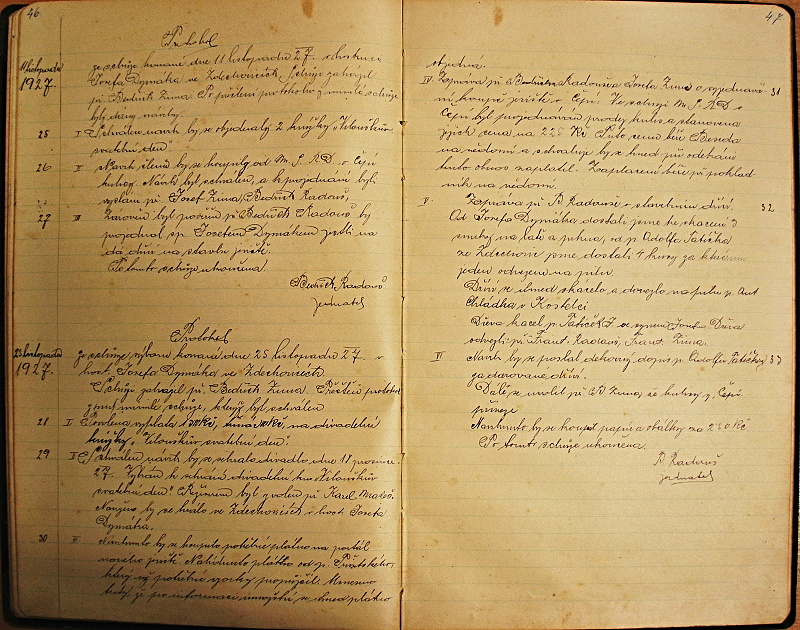 46
Protokol
11 listopadu
1927.
ze schůze konané dne 11 listopadu 27. v hostinci
Josefa Dymáka ve Zdechovicích. Schůzi zahájil
př. Bedřich Zima. Po přečtení protokolu z minulé schůze
byly dány návrhy.
25 I Schválen návrh by se objednaly 2 knížky "Vitouškův
svatební den"
26 II Návrh členů by se koupily od M. S. A D. v Čepí
kulisy. Návrh byl schválen, a k pojednání byli
vysláni př. Josef Zima, Bedřich Radouš,
27 III Zároveň byl pověřen př. Bedřich Radouš by
pojednal sp. Josefem Dymákem jestli na
dá dříví na stavbu jeviště.
Potomto schůze ukončena.
Bedřich Radouš
jednatel
Protokol
25 listopadu
1927.
ze schůze výboru konané dne 25 listopadu 27. v
host. Josefa Dymáka ve Zdechovicích.
Schůzi zahájil př. Bedřich Zima. Přečten protokol
z minulé schůze, který byl schválen
28 I Povolena výplata na divadelní
knížky "Vitouškův svatební den"
29 II Schválen návrh by se sehrálo divadlo dne 18 prosince
27. Vybrán k sehrání divadelní kus "Vitouškův
svatební den". Režisérem byl zvolen př. Karel
by se hrálo ve Zdechovicích v host. Josefa
Dymáka.
30 III by se koupilo potřebné plátno na portál
nového jeviště. Nabídnuto plátno od p.
který již potřebné vzorky
že po informaci se ihned plátno
47.
objedná.
IV Zpráva př. Bedřicha Radouše a Josefa Zimy o vyjednává- 31
ní koupě jeviště v Čepí. Ve schůzi M. S. A D. v
Čepí byl projednáván prodej kulis a stanovena
jejich cena na 225 Kč Tuto cenu béře Beseda
na vědomí a schvaluje by se hned při odebrání
tento obnos zaplatil. Zaplacení béře př. poklad
ník na vědomí.
V Zpráva př. B. Radouše o stavebním dříví. 32
Od Josefa Dymáka dostali jsme ke skácení 3
smrky na latě a prkna, od p. Adolfa Tatíčka
ze Zdechovic jsme dostali 4 kusy
jeden odvezen na pilu.
Dříví se ihned skácelo a dovezlo na pilu p. Ant
Chládka v Kostelci.
Dřeva kácel p. Tatíček J. se synem Josef. Dřeva
odvezli př. Frant. Radouš, Frant. Zima.
VI Návrh by se poslal děkovný dopis p. Adolfu Tatíčkovi 33
za darované dříví.
Dále se uvolil př. B. Zima, že kulisy z Čepí
přiveze
by se koupil papír a obálky za
Po tomto schůze ukončena.
B. Radouš
jednatel